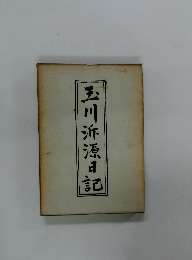 玉川泝源日記